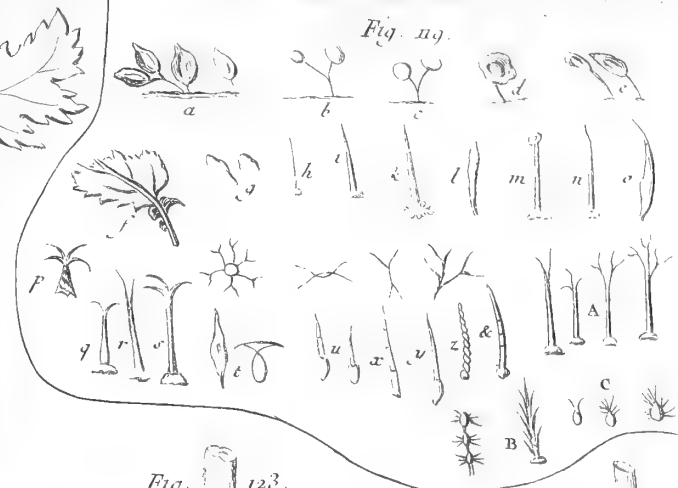 Fig. 119.
a b c d e
g h i k l m n o
p
q r s t u x y z & A
B C
Fig. 123.